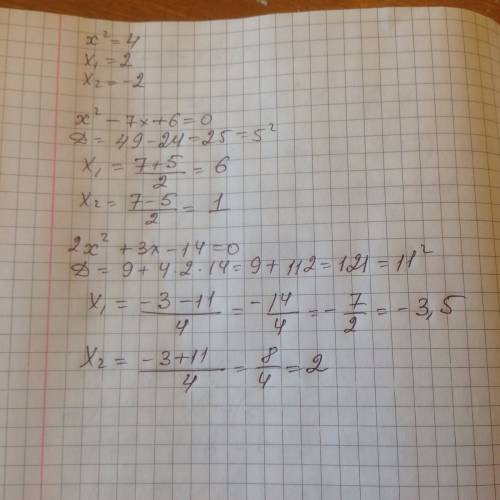 x² = 4
x₁ = 2
x₂ = -2
x² - 7x + 6 = 0
D = 49 - 24 = 25 = 5²
x₁ = (7+5)/2 = 6
x₂ = (7-5)/2 = 1
2x² + 3x - 14 = 0
D = 9 + 4·2·14 = 9 + 112 = 121 = 11²
x₁ = (-3-11)/4 = -14/4 = -7/2 = -3,5
x₂ = (-3+11)/4 = 8/4 = 2